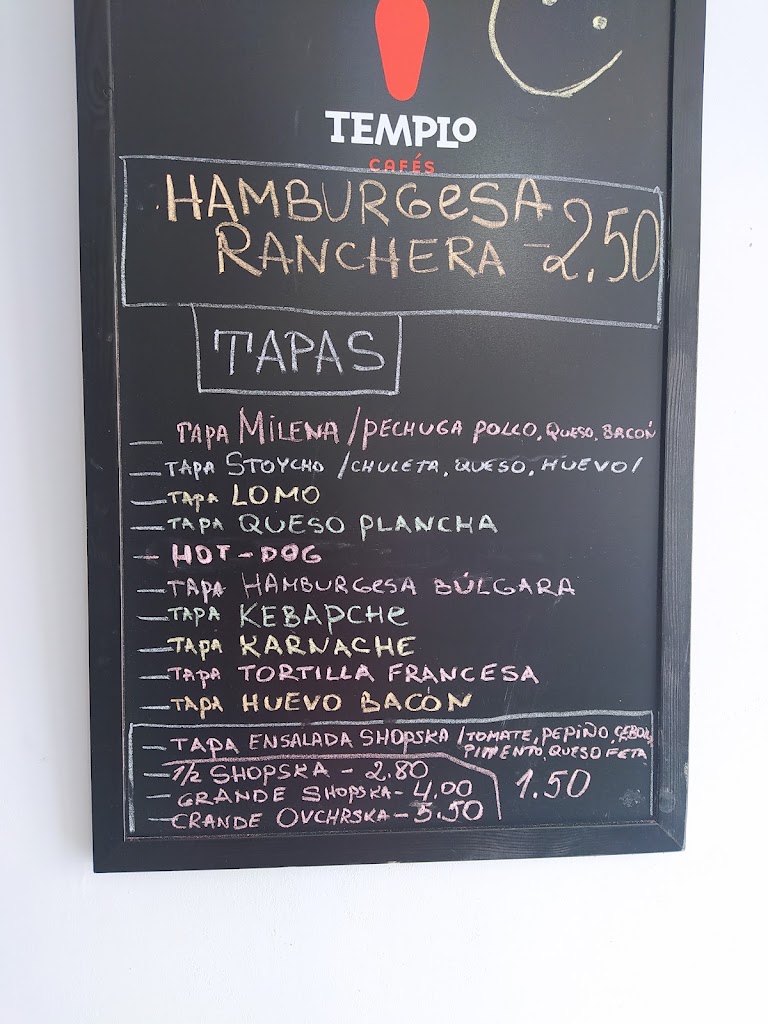 TEMPLO
CAFÉS
HAMBURGeSA
RANCHERA - 2.50
TAPAS
— TAPA MILENA / PECHUGA POLLO, QUESO, BACÓN
— TAPA STOYCHO / CHULETA, QUESO, HUEVO /
— TAPA LOMO
— TAPA QUESO PLANCHA
- HOT-DOG
— TAPA HAMBURGeSA BÚLGARA
— TAPA KEBAPCHe
— TAPA KARNACHE
— TAPA TORTILLA FRANCESA
— TAPA HUEVO BACÓN
— TAPA ENSALADA SHOPSKA / TOMATE, PEPIÑO,
PIMENTO, QUESO FETA
— 1/2 SHOPSKA - 2.80
— GRANDE SHOPSKA - 4.00
1.50
— GRANDE OVCHRSKA - 5.50